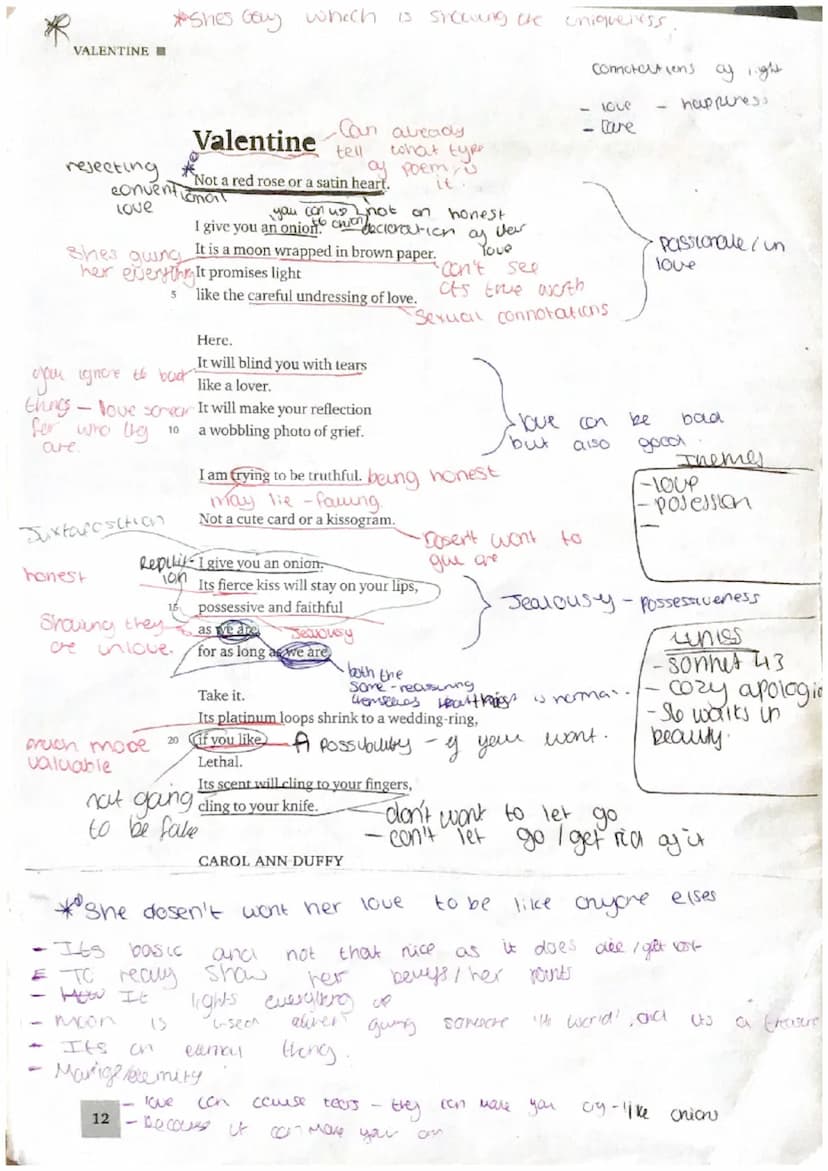 *Shes Gay which is showing the uniqueness.
VALENTINE
connotations of light
- love - happiness
- care
Valentine
Can already
tell what type
of poem is
it.
rejecting
conventional
love
Not a red rose or a satin heart.
not an honest
decloration of her
love
I give you an onion.
It is a moon wrapped in brown paper.
Shes giving
her everything
It promises light
can't see
its true worth
5 like the careful undressing of love.
Sexual connotations
passionate/in
love
Here.
It will blind you with tears
like a lover.
you ignore the bad
things - love someone
for who they
are.
It will make your reflection
10 a wobbling photo of grief.
love can be bad
but also good.
I am trying to be truthful.
being honest
may lie - failing
Not a cute card or a kissogram.
Dosen't want to
give
Themes
- love
- posession
-
Juxtaposition
Repitit-
ion
honest
I give you an onion.
Its fierce kiss will stay on your lips,
15 possessive and faithful
as we are,
for as long as we are.
Jealousy
Showing they
are in love.
Jealousy - possessiveness
both the
same - reassuring
themselves
is normal.
Links
- Sonnet 43
- cozy apologia
- She walks in
beauty.
Take it.
Its platinum loops shrink to a wedding-ring,
20 if you like.
A possibility - if you want.
much more
valuable
Lethal.
Its scent will cling to your fingers,
cling to your knife.
not going
to be fake
- don't want to let go
- can't let go/get rid of it
CAROL ANN DUFFY
*She dosen't want her love to be like anyone elses
- Its basic and not that nice as it does die/get
- To really show her beliefs/her points
- It lights everything up
- Moon is giving someone 'the world', and its a treasure
- Its an eternal thing.
- Marige/eternity
- love can cause tears - they can make you cry - like onions
- Because it can make you
12